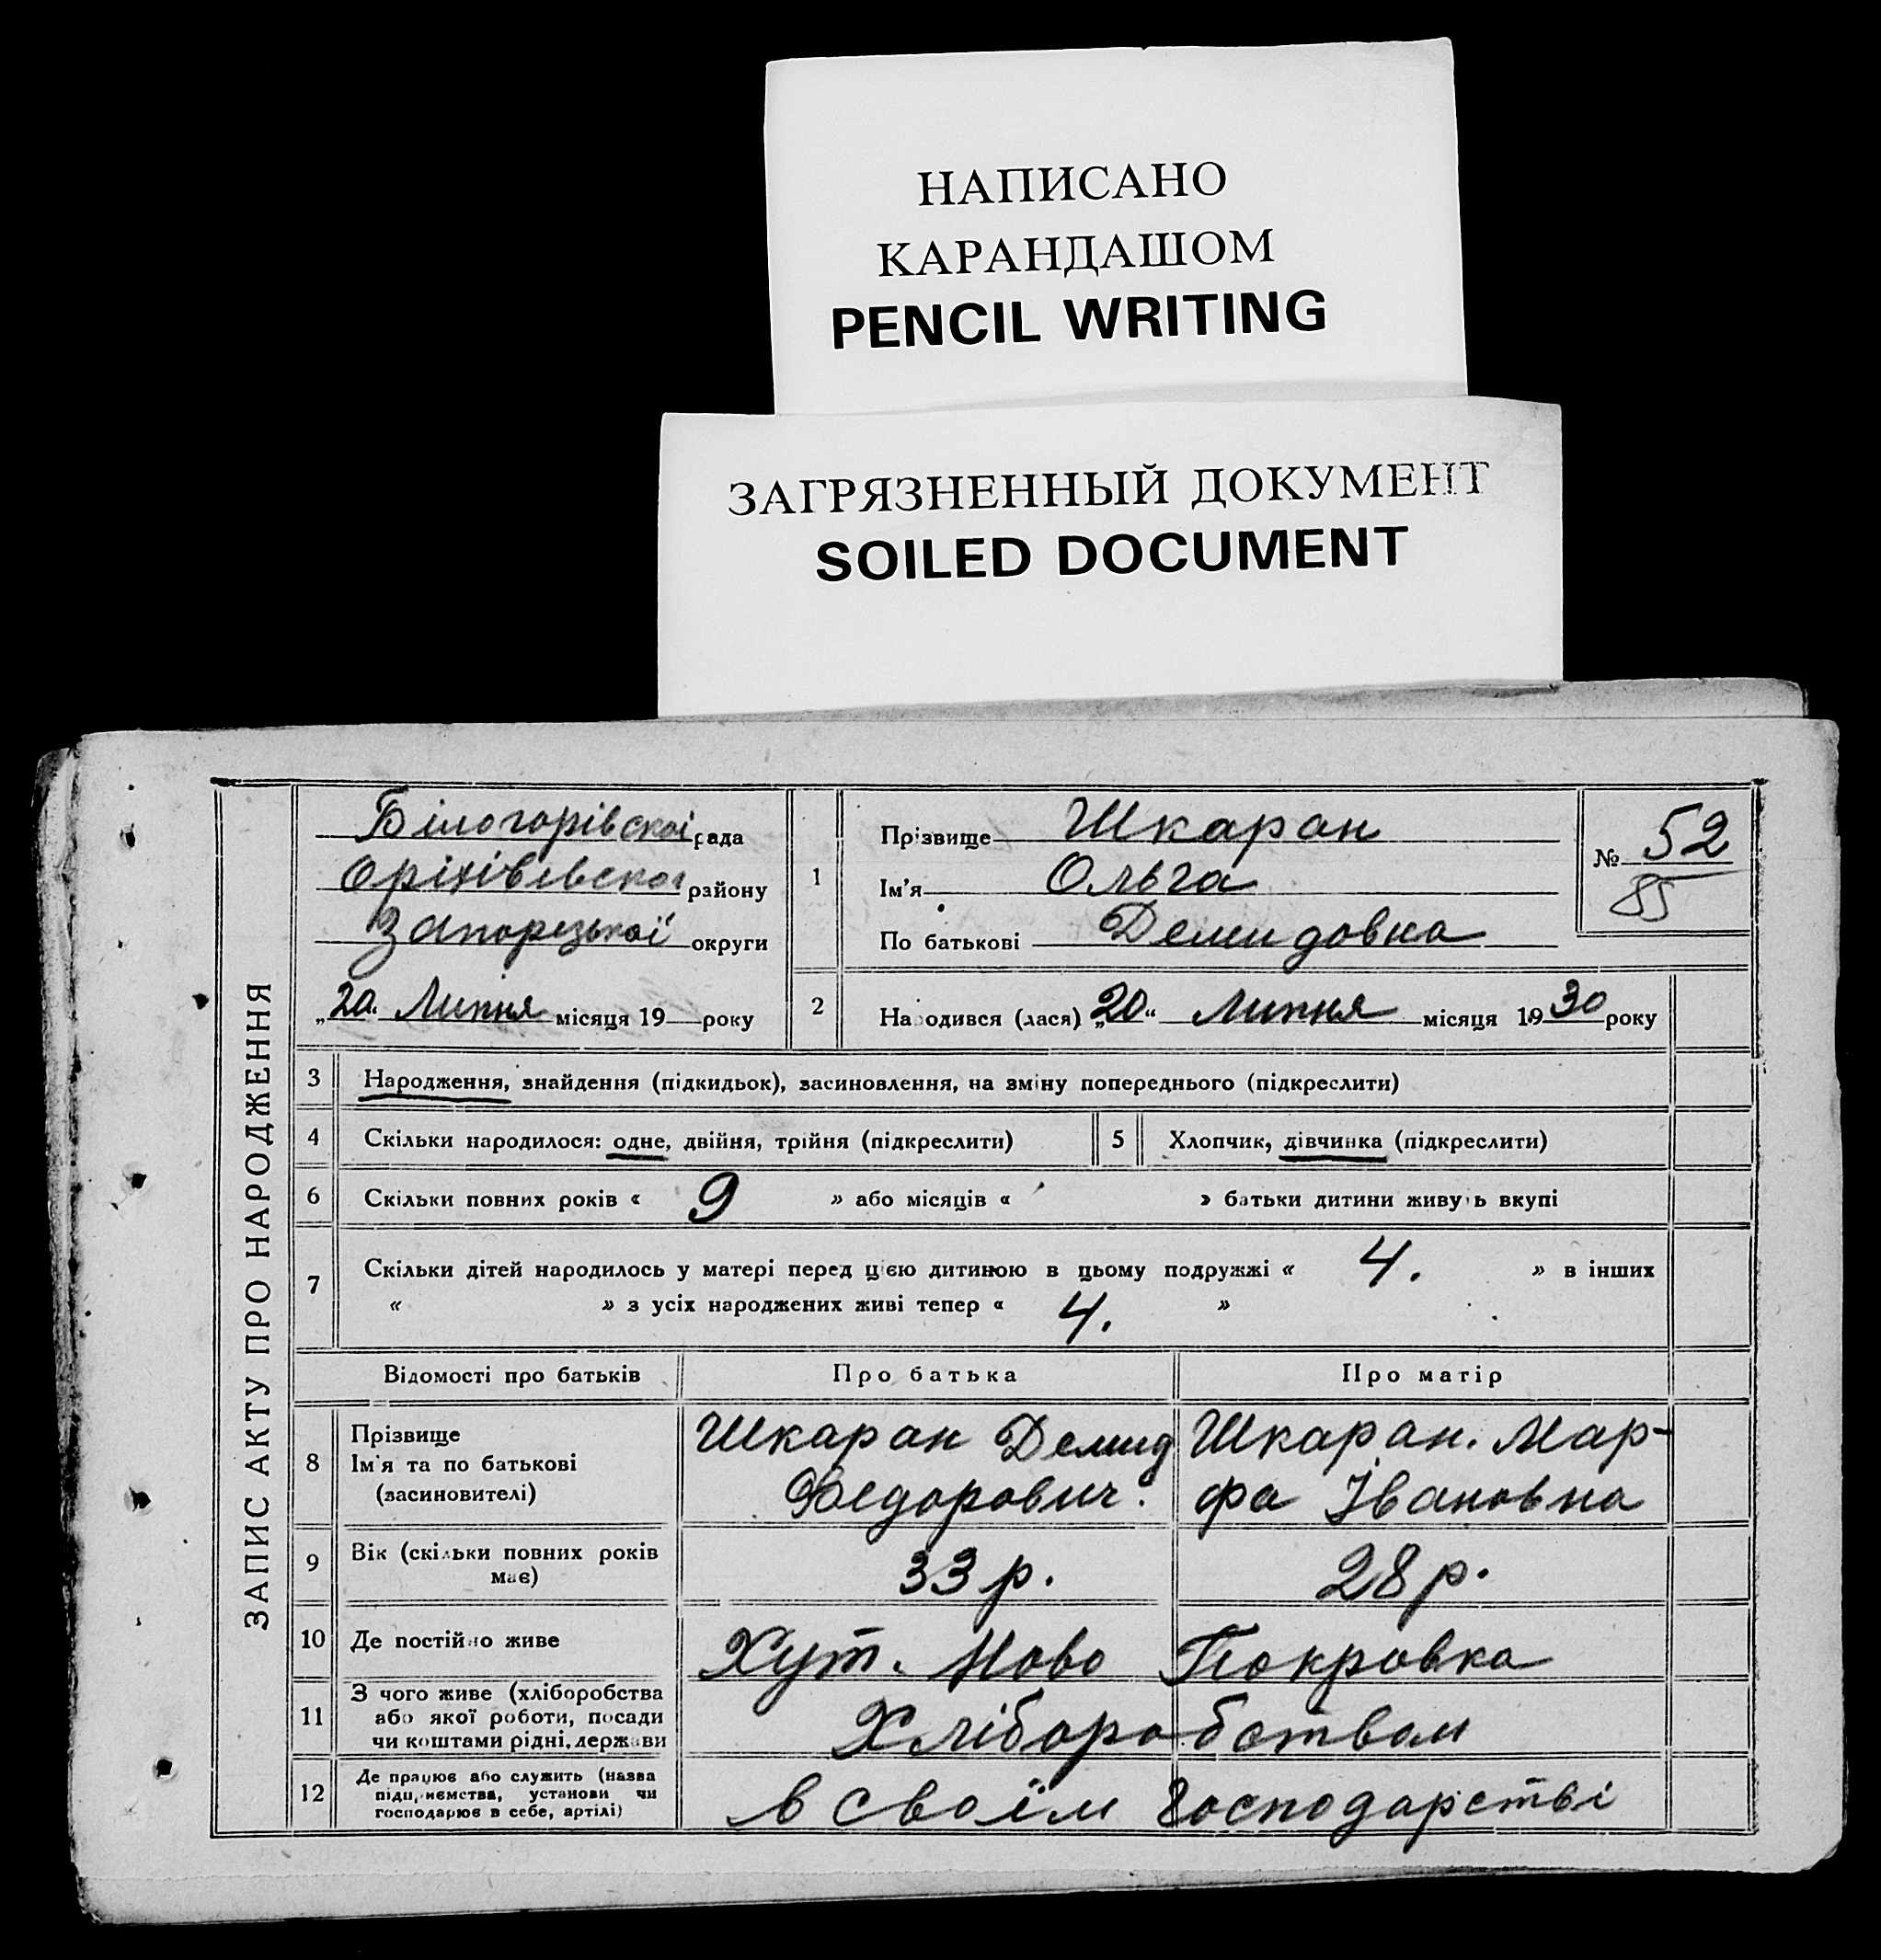 НАПИСАНО
КАРАНДАШОМ
PENCIL WRITING
ЗАГРЯЗНЕННЫЙ ДОКУМЕНТ
SOILED DOCUMENT
ЗАПИС АКТУ ПРО НАРОДЖЕННЯ
Білогорівскої рада
району
Запорізької округи
„20“ Липня місяця 19 року
1
Прізвище Шкаран
Ім'я Ольга
По батькові Демидовна
№ 52
85
2
Народився (лася) „20“ Липня місяця 1930 року
3 Народження, знайдення (підкидьок), засиновлення, на зміну попереднього (підкреслити)
4 Скільки народилося: одне, двійня, трійня (підкреслити) 5 Хлопчик, дівчинка (підкреслити)
6 Скільки повних років « 9 » або місяців « » батьки дитини живуть вкупі
7 Скільки дітей народилось у матері перед цією дитиною в цьому подружжі « 4. » в інших
« » з усіх народжених живі тепер « 4. »
Відомості про батьків Про батька Про матір
8 Прізвище
Ім'я та по батькові
(засиновителі)
Шкаран Демид
Федорович.
Шкаран. Мар-
фа Івановна
9 Вік (скільки повних років
має)
33 р. 28 р.
10 Де постійно живе Хут. Ново Покровка
11 З чого живе (хліборобства
або якої роботи, посади
чи коштами рідні, держави
Хліборобством
12 Де працює або служить (назва
підприємства, установи чи
господарює в себе, артілі)
в своїм господарстві